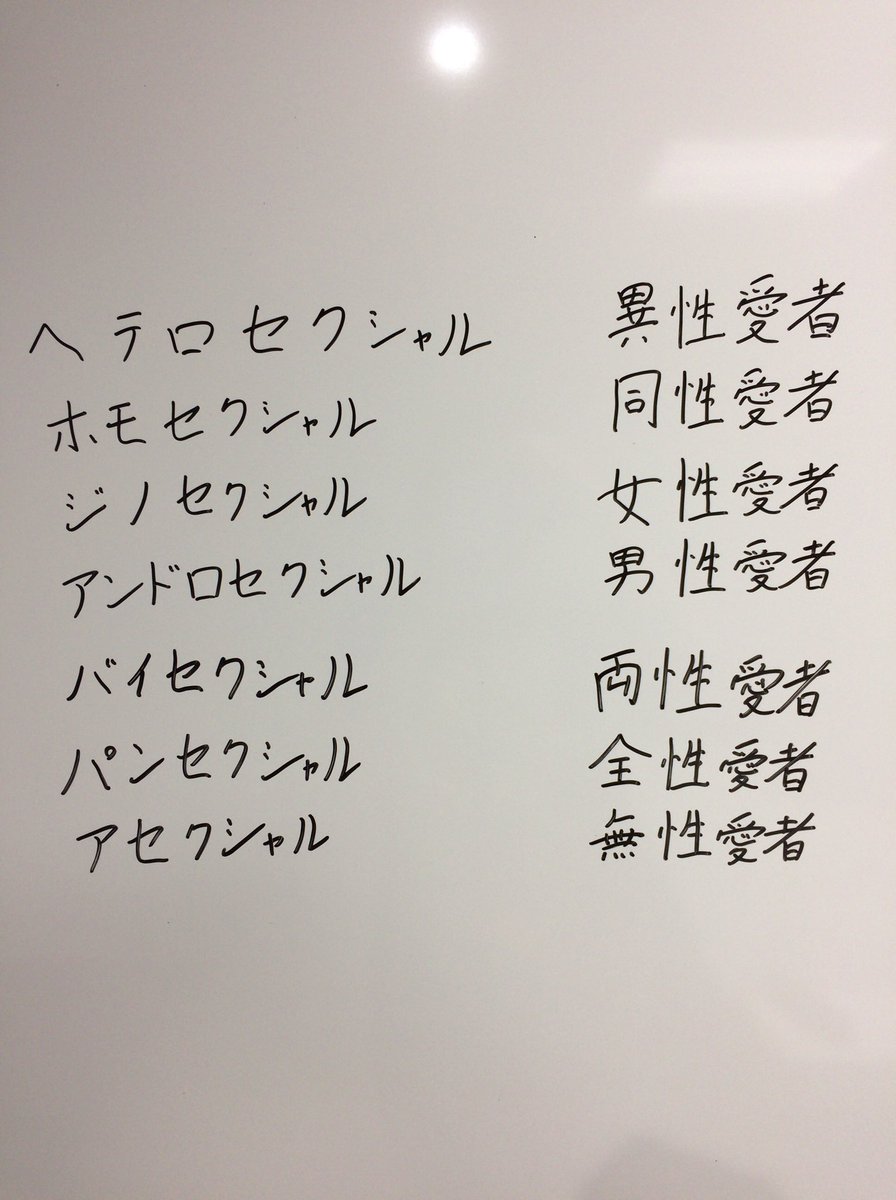 ヘテロセクシャル 異性愛者
ホモセクシャル 同性愛者
ジノセクシャル 女性愛者
アンドロセクシャル 男性愛者
バイセクシャル 両性愛者
パンセクシャル 全性愛者
アセクシャル 無性愛者